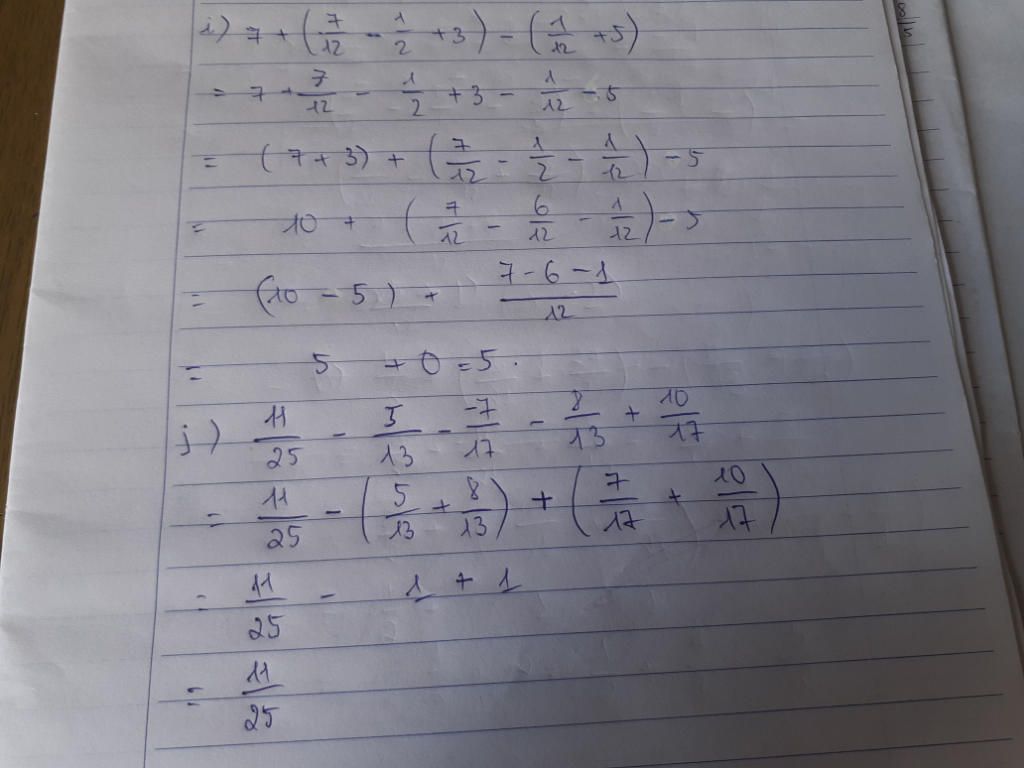 i) 7 + (7/12 - 1/2 + 3) - (1/12 + 5)
= 7 + 7/12 - 1/2 + 3 - 1/12 - 5
= (7 + 3) + (7/12 - 1/2 - 1/12) - 5
= 10 + (7/12 - 6/12 - 1/12) - 5
= (10 - 5) + (7 - 6 - 1)/12
= 5 + 0 = 5.
j) 11/25 - 5/13 - -7/17 - 8/13 + 10/17
= 11/25 - (5/13 + 8/13) + (7/17 + 10/17)
= 11/25 - 1 + 1
= 11/25